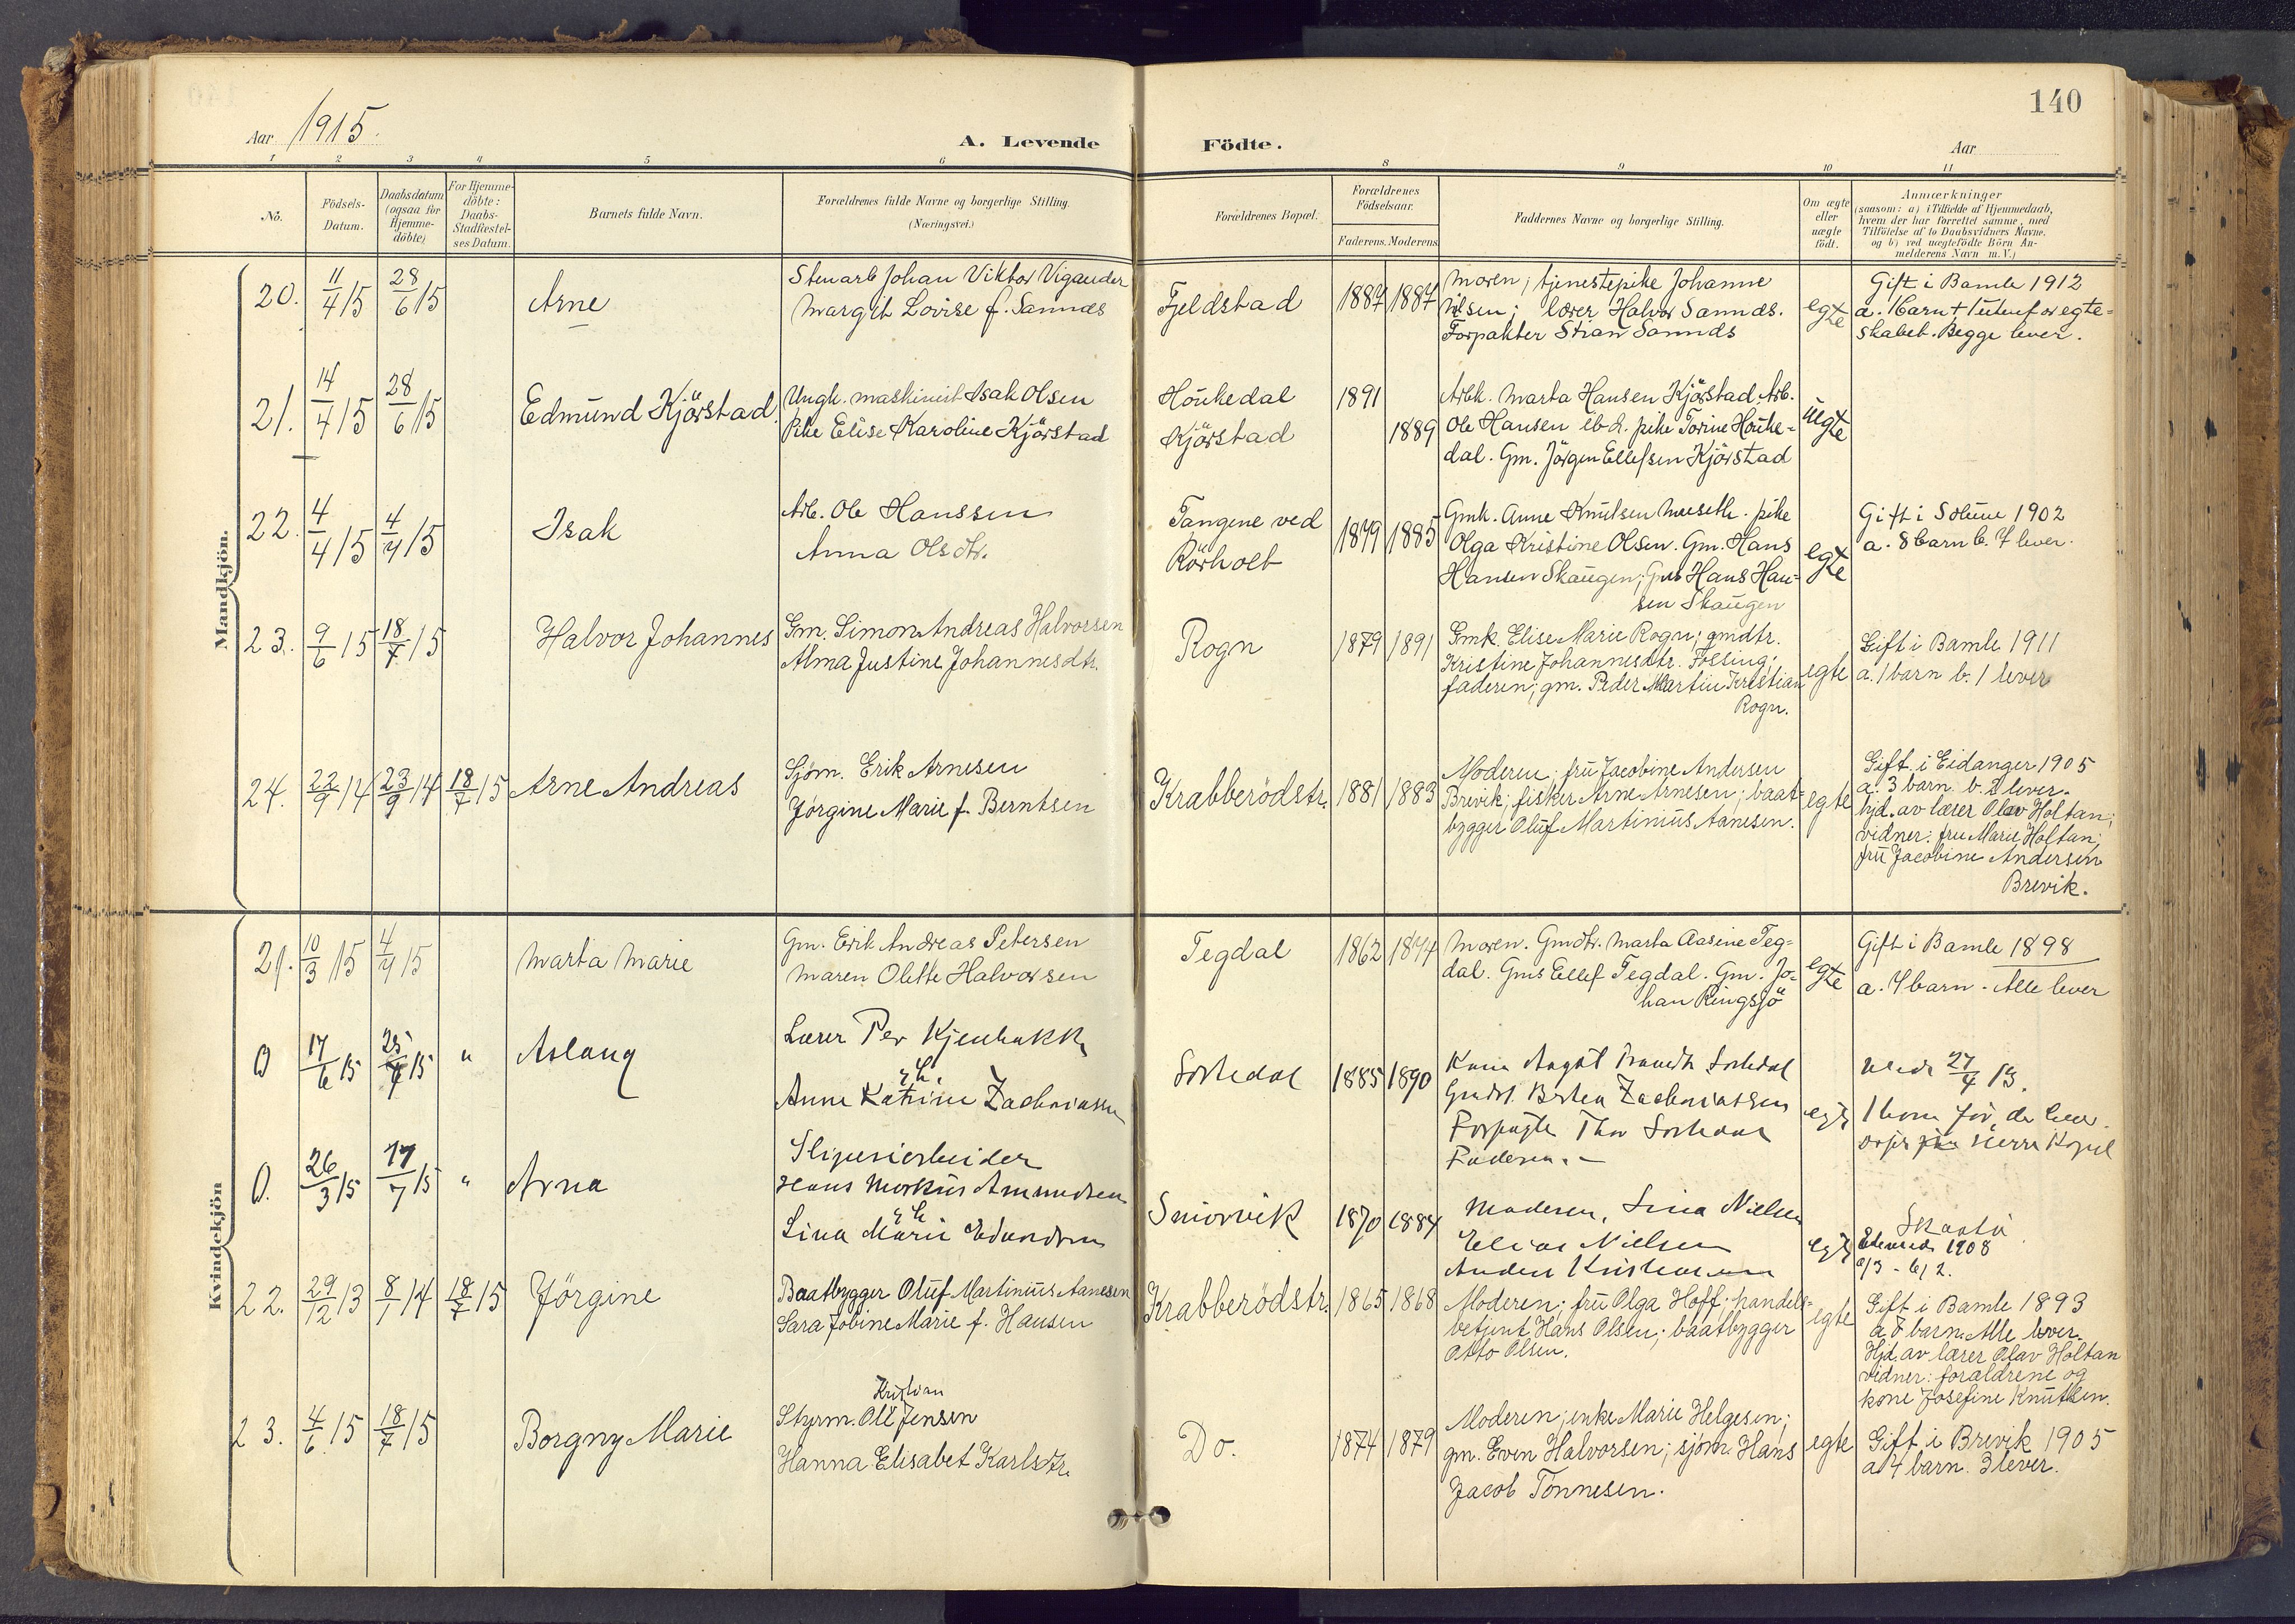 140
Aar 1915.
A. Levende Födte.
Aar
1 2 3 4 5 6 8 9 10 11
No.
Födsels-
Datum.
Daabsdatum
(ogsaa for
Hjemme-
döbte)
For Hjemme-
döbte:
Daabs-
Stadfæstel-
ses Datum.
Barnets fulde Navn.
Forældrenes fulde Navne og borgerlige Stilling.
(Næringsvei.)
Forældrenes Bopæl.
Forældrenes
Födselsaar.
Faderens. Moderens.
Faddernes Navne og borgerlige Stilling.
Om ægte
eller
uægte
födt.
Anmærkninger
(saasom: a) i Tilfælde af Hjemmedaab,
hvem der har forrettet samme, med
Tilföielse af to Daabsvidners Navne,
og b) ved uægtefödte Börn An-
melderens Navn m. V.)
Mandkjön.
20. 11/4 15 28/6 15
Arne
Stuart Johan Viktor Vigander
Margit Lovise f. Sannæs
Fjeldstad
1887 1887
Moren; tjenestepike Johanne
Nilsen; lærer Halvor Sannæs.
Forpakter Stian Sannæs
egte
Gift i Bamle 1912
a. 1 barn + 1 utenfor egte-
skabet. Begge lever.
21. 14/4 15 28/6 15
Edmund Kjörstad.
Ungk. maskinist Isak Olsen
Pike Elise Karoline Kjörstad
Houkedal
Kjörstad
1891
1889
Arbk. Marta Hansen Kjörstad. Arb.
Ole Hansen ibd. pike Torine Houke-
dal. Gm. Jörgen Ellefsen Kjörstad
uegte
22. 4/4 15 4/7 15
Isak
Arb. Ole Hanssen
Anna Olsdtr.
Tangene ved
Rörholt
1879 1885
Gmk. Anne Knutsen . pike
Olga Kristine Olsen. Gm. Hans
Hansen Skaugen; Gms Hans Han-
sen Skaugen
egte
Gift i Solum 1902
a. 8 barn b. 7 lever.
23. 9/6 15 18/7 15
Halvor Johannes
Gm. Simon Andreas Halvorsen
Alma Justine Johannesdtr.
Rogn
1879 1891
Gmk. Elise Marie Rogn; gmdtr.
Kristine Johannesdtr. Fossing;
faderen; gm. Peder Martin Kristian
Rogn.
egte
Gift i Bamle 1911
a. 1 barn b. 1 lever
24. 22/9 14 23/9 14 18/7 15
Arne Andreas
Sjöm. Erik Arnesen
Jörgine Marie f. Berntsen
Krabberödstr.
1881 1883
Moderen; fru Jacobine Andersen
Brevik; fisker Arne Arnesen; baat-
bygger Oluf Martinius Aanesen.
egte
Gift i Eidanger 1905
a. 3 barn b. 2 lever.
hjd. av lærer Olav Holtan;
vidner: fru Marie Holtan;
fru Jacobine Andersen
Brevik.
Kvindekjön
21. 10/3 15 4/7 15
Marta Marie
Gm. Erik Andreas Petersen
Maren Olette Halvorsen
Tegdal
1862 1874
Moren. Gmdtr. Marta Aasine Teg-
dal. Gms Ellef Tegdal. Gm. Jo-
han Ringsjö
egte
Gift i Bamle 1898
a. 4 barn. Alle lever
0 17/6 15 25/7 15 "
Aslaug
Lærer Per Kjenbakk
Anne Katrine Zachariassen
1885 1890
Zachariassen
Faderen.
27/4 13.
0. 26/3 15 17/7 15 "
Arna
Sliperiarbeider
Hans Markus Amundsen
Lina Marie
1870 1884
Moderen, Lina Nielsen
Elias Nielsen
Anders Kristiansen
Skaatö
1908
a) 3 - b) 2.
22. 29/12 13 8/1 14 18/7 15
Jörgine
Baatbygger Oluf Martinius Aanesen
Sara Jobine Marie f. Hansen
Krabberödstr.
1865 1868
Moderen; fru Olga Hoff; handels-
betjent Hans Olsen; baatbygger
Otto Olsen.
egte
Gift i Bamle 1893
a. 7 barn. Alle lever.
Hjd. av lærer Olav Holtan
vidner: forældrene og
kone Josefine Knutsen.
23. 4/6 15 18/7 15
Borgny Marie
Kristian
Styrm. Ole Jensen
Hanna Elisabet Karlsdtr.
Do.
1874 1879
Moderen; enke Marie Helgesen;
gm. Even Halvorsen; sjöm. Hans
Jacob Tönnesen.
egte
Gift i Brevik 1905
a. 4 barn. 3 lever.